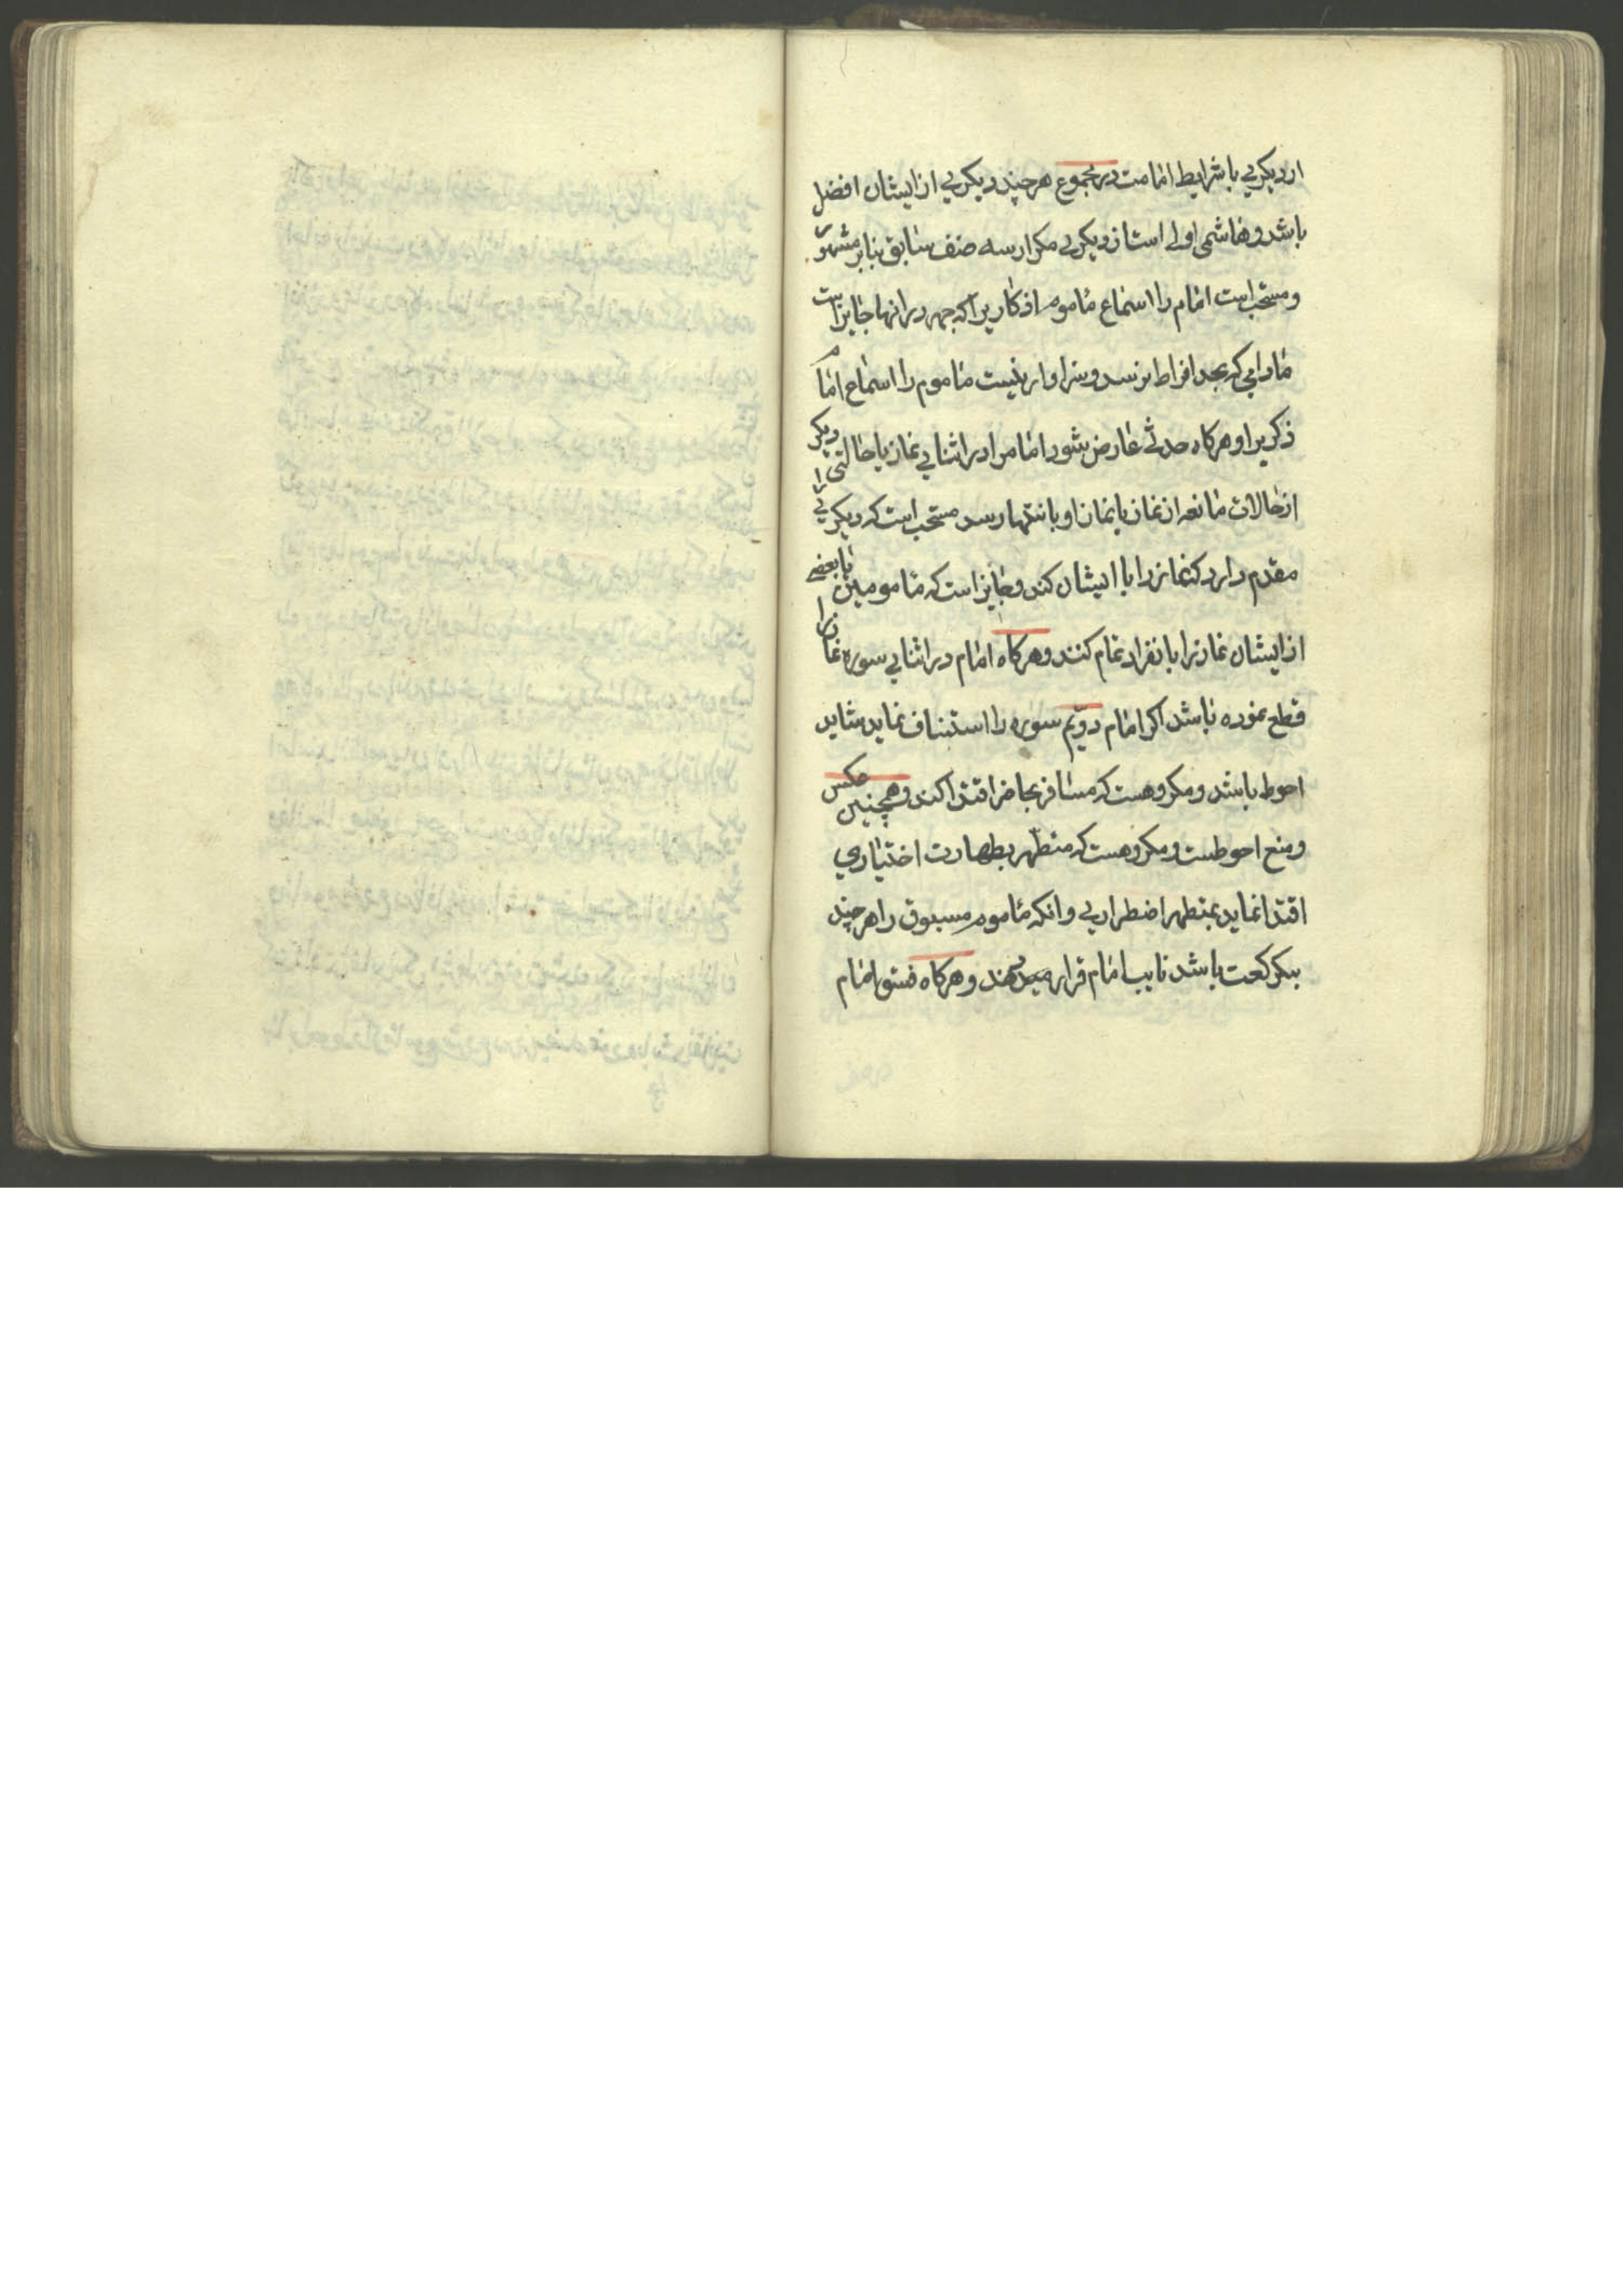 از دیکری با شرایط امامت در مجموع هر چند دیکری از ایشان افضل
باشد و هاشمی اولی است از دیکری مکر از سه صنف سابق بنابر مشهور
و مستحب است امام را اسماع ماموم اذکاریرا که جهر در انها جایز است
مادامی که بحد افراط نرسد و سزاوار نیست ماموم را اسماع امام
ذکریرا و هرکاه حدثی عارض شود امام را در اثنای نماز یا حالتی دیکر
از حالات مانعه از نماز یا نماز او بانتها رسد مستحب است که دیکری را
مقدم دارد که نماز را با ایشان کند و جایز است که مامومین یا بعضی
از ایشان نماز را بانفراد تمام کنند و هرکاه امام در اثنای سوره نماز را
قطع نموده باشد اکر امام دویم سوره را استیناف نماید شاید
احوط باشد و مکروهست که مسافر بحاضر اقتدا کند و همچنین عکس
و منع احوطست و مکروهست که متطهر بطهارت اختیاری
اقتدا نماید بمتطهر اضطراری و انکه ماموم مسبوق را هر چند
بیکرکعت باشد نایب امام قرار میدهند و هرکاه فسق امام